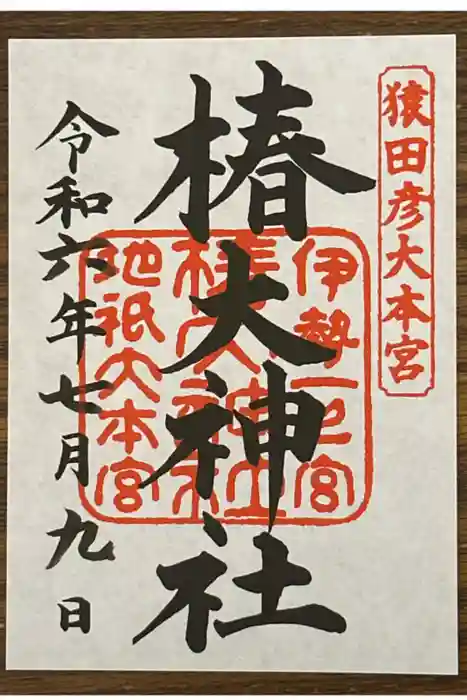 猿田彦大本宮
椿大神社
伊勢一之宮
椿大神社
地祇大本宮
令和六年七月九日